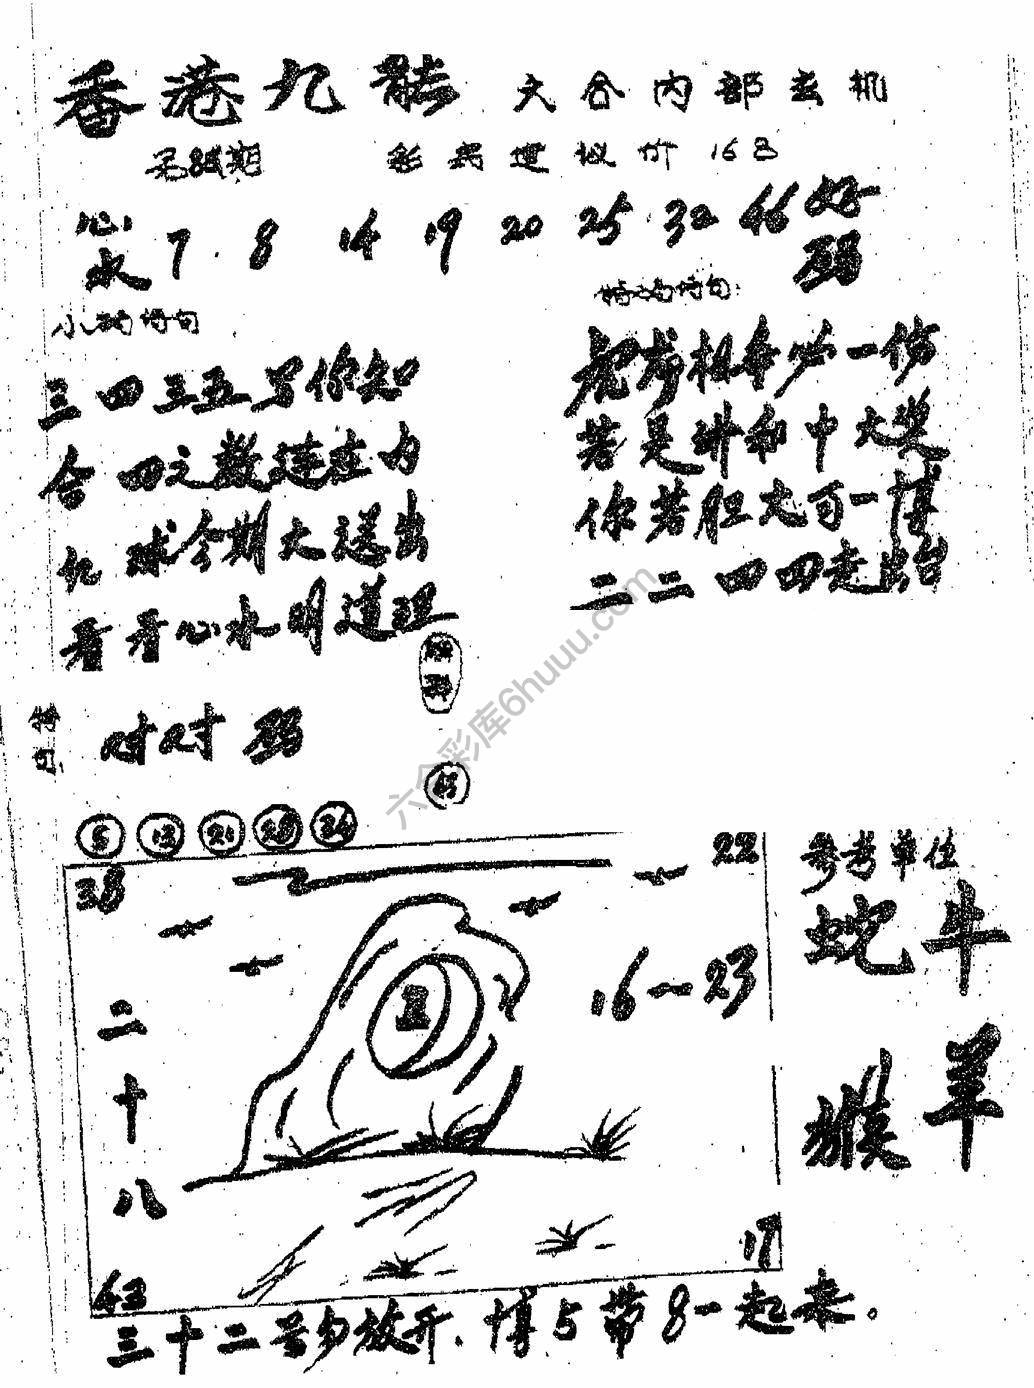 香港九龍 六合内部玄机
彩民建议价 16元
心水 7. 8 14 19 20 25. 32 46
小玩诗句
三四三五另你知
合四之数连在力
九球今期大送出
看看心水明道理
虎考相奔必一伤
若是讲和中大奖
你若胆大可一博
二二四四走出台
特码
对对碼
5 13 21 28 34
38
22
二十八
16—23
43
17
参考单位
蛇牛
猴羊
三十二号勿放开.博5带8一起来。
六合彩库6huuu.com